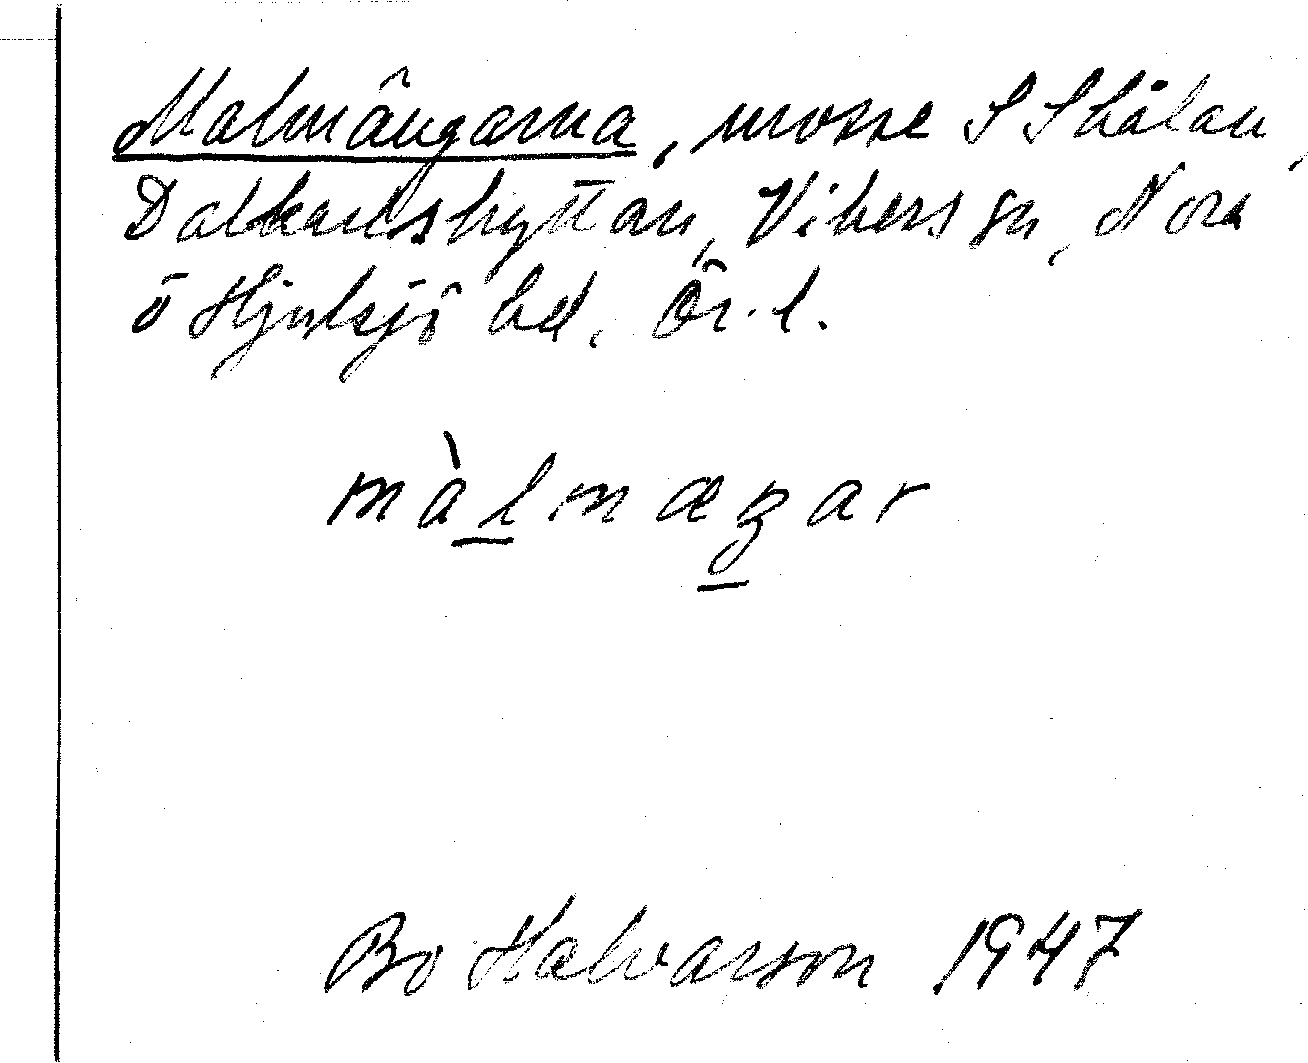 Malmängarna, mosse S Skålan,
Dalkarlshyttan, Vikers sn, Nora
o Hjulsjö bd. Ör. l.
màlmæŋar
Bo Halvarson 1947